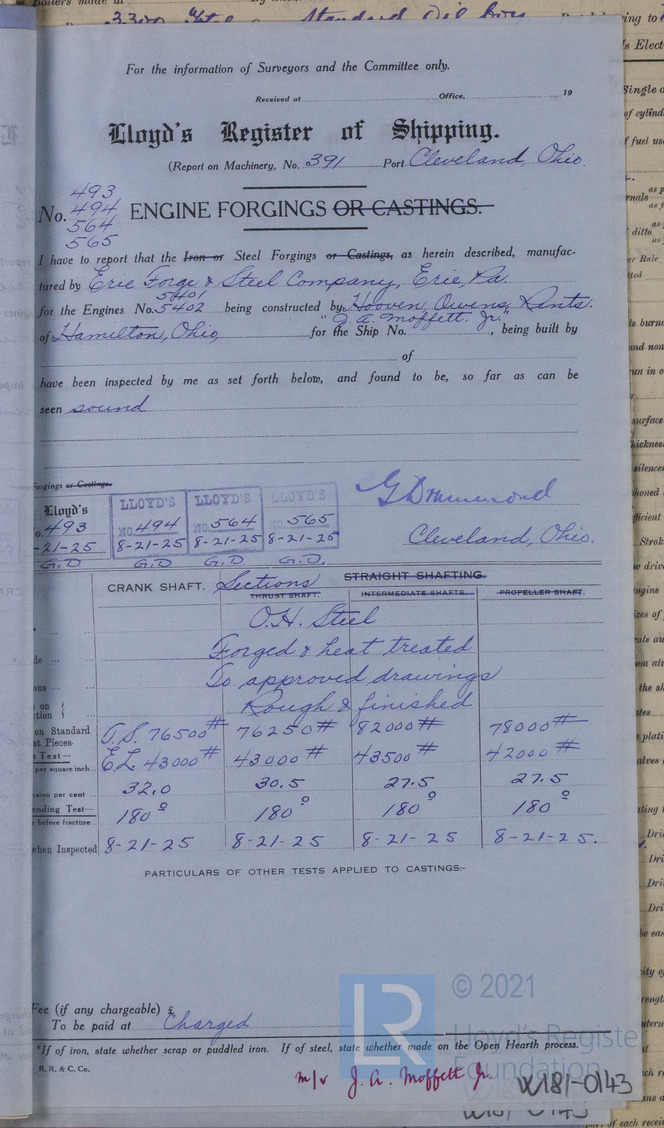 3300
Standard Oil
For the information of Surveyors and the Committee only.
Received at Office, 19
Lloyd's Register of Shipping.
(Report on Machinery, No. 391 Port Cleveland, Ohio.
493
No. 494
564
565
ENGINE FORGINGS OR CASTINGS.
I have to report that the Iron or Steel Forgings or Castings, as herein described, manufac-
tured by Erie Forge & Steel Company, Erie, Pa.
5401
for the Engines No. 5402 being constructed by Hooven Owens, Rents.
"J. A. Moffett. Jr."
of Hamilton, Ohio, for the Ship No. , being built by
of
have been inspected by me as set forth below, and found to be, so far as can be
seen sound
Forgings or Castings.
Lloyd's LLOYD'S LLOYD'S LLOYD'S
o. 493 NO. 494 NO. 564 NO. 565
-21-25 8-21-25 8-21-25 8-21-25
G.D G.D G.D G.D.
G Drummond
Cleveland, Ohio.
CRANK SHAFT. Sections STRAIGHT SHAFTING.
THRUST SHAFT. INTERMEDIATE SHAFTS. PROPELLER SHAFT.
O.H. Steel
Forged & heat treated
To approved drawings
Rough & finished
on Standard
st Pieces. T.S. 76500# 76250# 82000# 78000#
Test— E.L 43000# 43000# 43500# 42000#
per square inch
sion per cent 32.0 30.5 27.5 27.5
ending Test— 180° 180° 180° 180°
before fracture
when Inspected 8-21-25 8-21-25 8-21-25 8-21-25.
PARTICULARS OF OTHER TESTS APPLIED TO CASTINGS:-
Fee (if any chargeable) $
To be paid at Charged
*If of iron, state whether scrap or puddled iron. If of steel, state whether made on the Open Hearth process.
R. R. & C. Co.
m/v J. A. Moffett Jr.
W181-0143
LR
© 2021
Lloyd's Register
Foundation